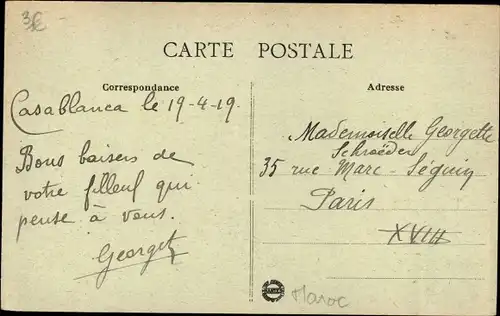 3€
CARTE POSTALE
Correspondance
Casablanca le 19-4-19.
Bons baisers de
votre filleul qui
pense à vous.
Georget
Adresse
Mademoiselle Georgette
Schroëder
35 rue Marc-Séguin
Paris
XVIII
Maroc